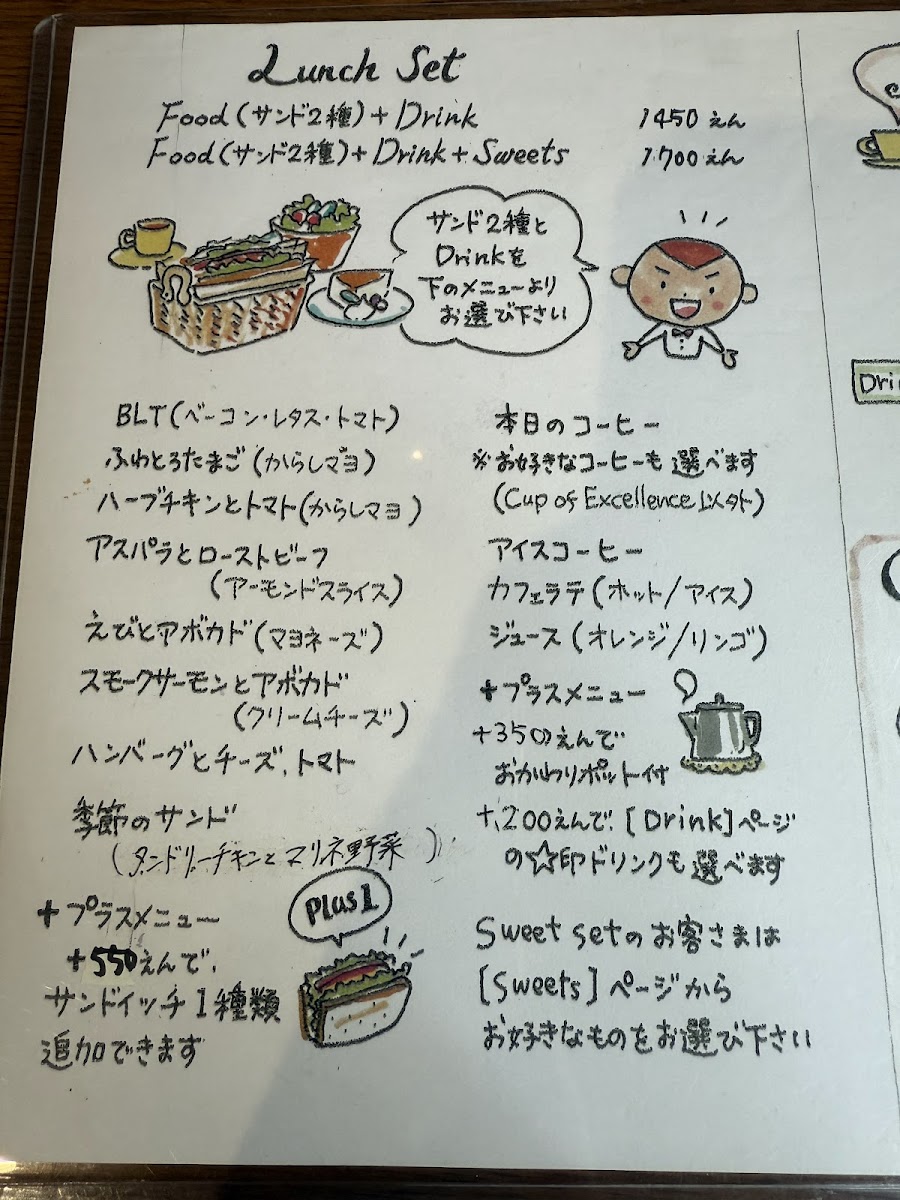 Lunch Set
Food(サンド2種)+Drink 1450えん
Food(サンド2種)+Drink+Sweets 1700えん
サンド2種と
Drinkを
下のメニューより
お選び下さい
BLT(ベーコン・レタス・トマト)
ふわとろたまご(からしマヨ)
ハーブチキンとトマト(からしマヨ)
アスパラとローストビーフ
(アーモンドスライス)
えびとアボカド(マヨネーズ)
スモークサーモンとアボカド
(クリームチーズ)
ハンバーグとチーズ、トマト
季節のサンド
(タンドリーチキンとマリネ野菜)
+プラスメニュー
+550えんで、
サンドイッチ1種類
追加できます
Plus1
本日のコーヒー
※お好きなコーヒーも選べます
(Cup of Excellence以外)
アイスコーヒー
カフェラテ(ホット/アイス)
ジュース(オレンジ/リンゴ)
+プラスメニュー
+350えんで
おかわりポット付
+200えんで、[Drink]ページ
の☆印ドリンクも選べます
Sweet setのお客さまは
[Sweets]ページから
お好きなものをお選び下さい